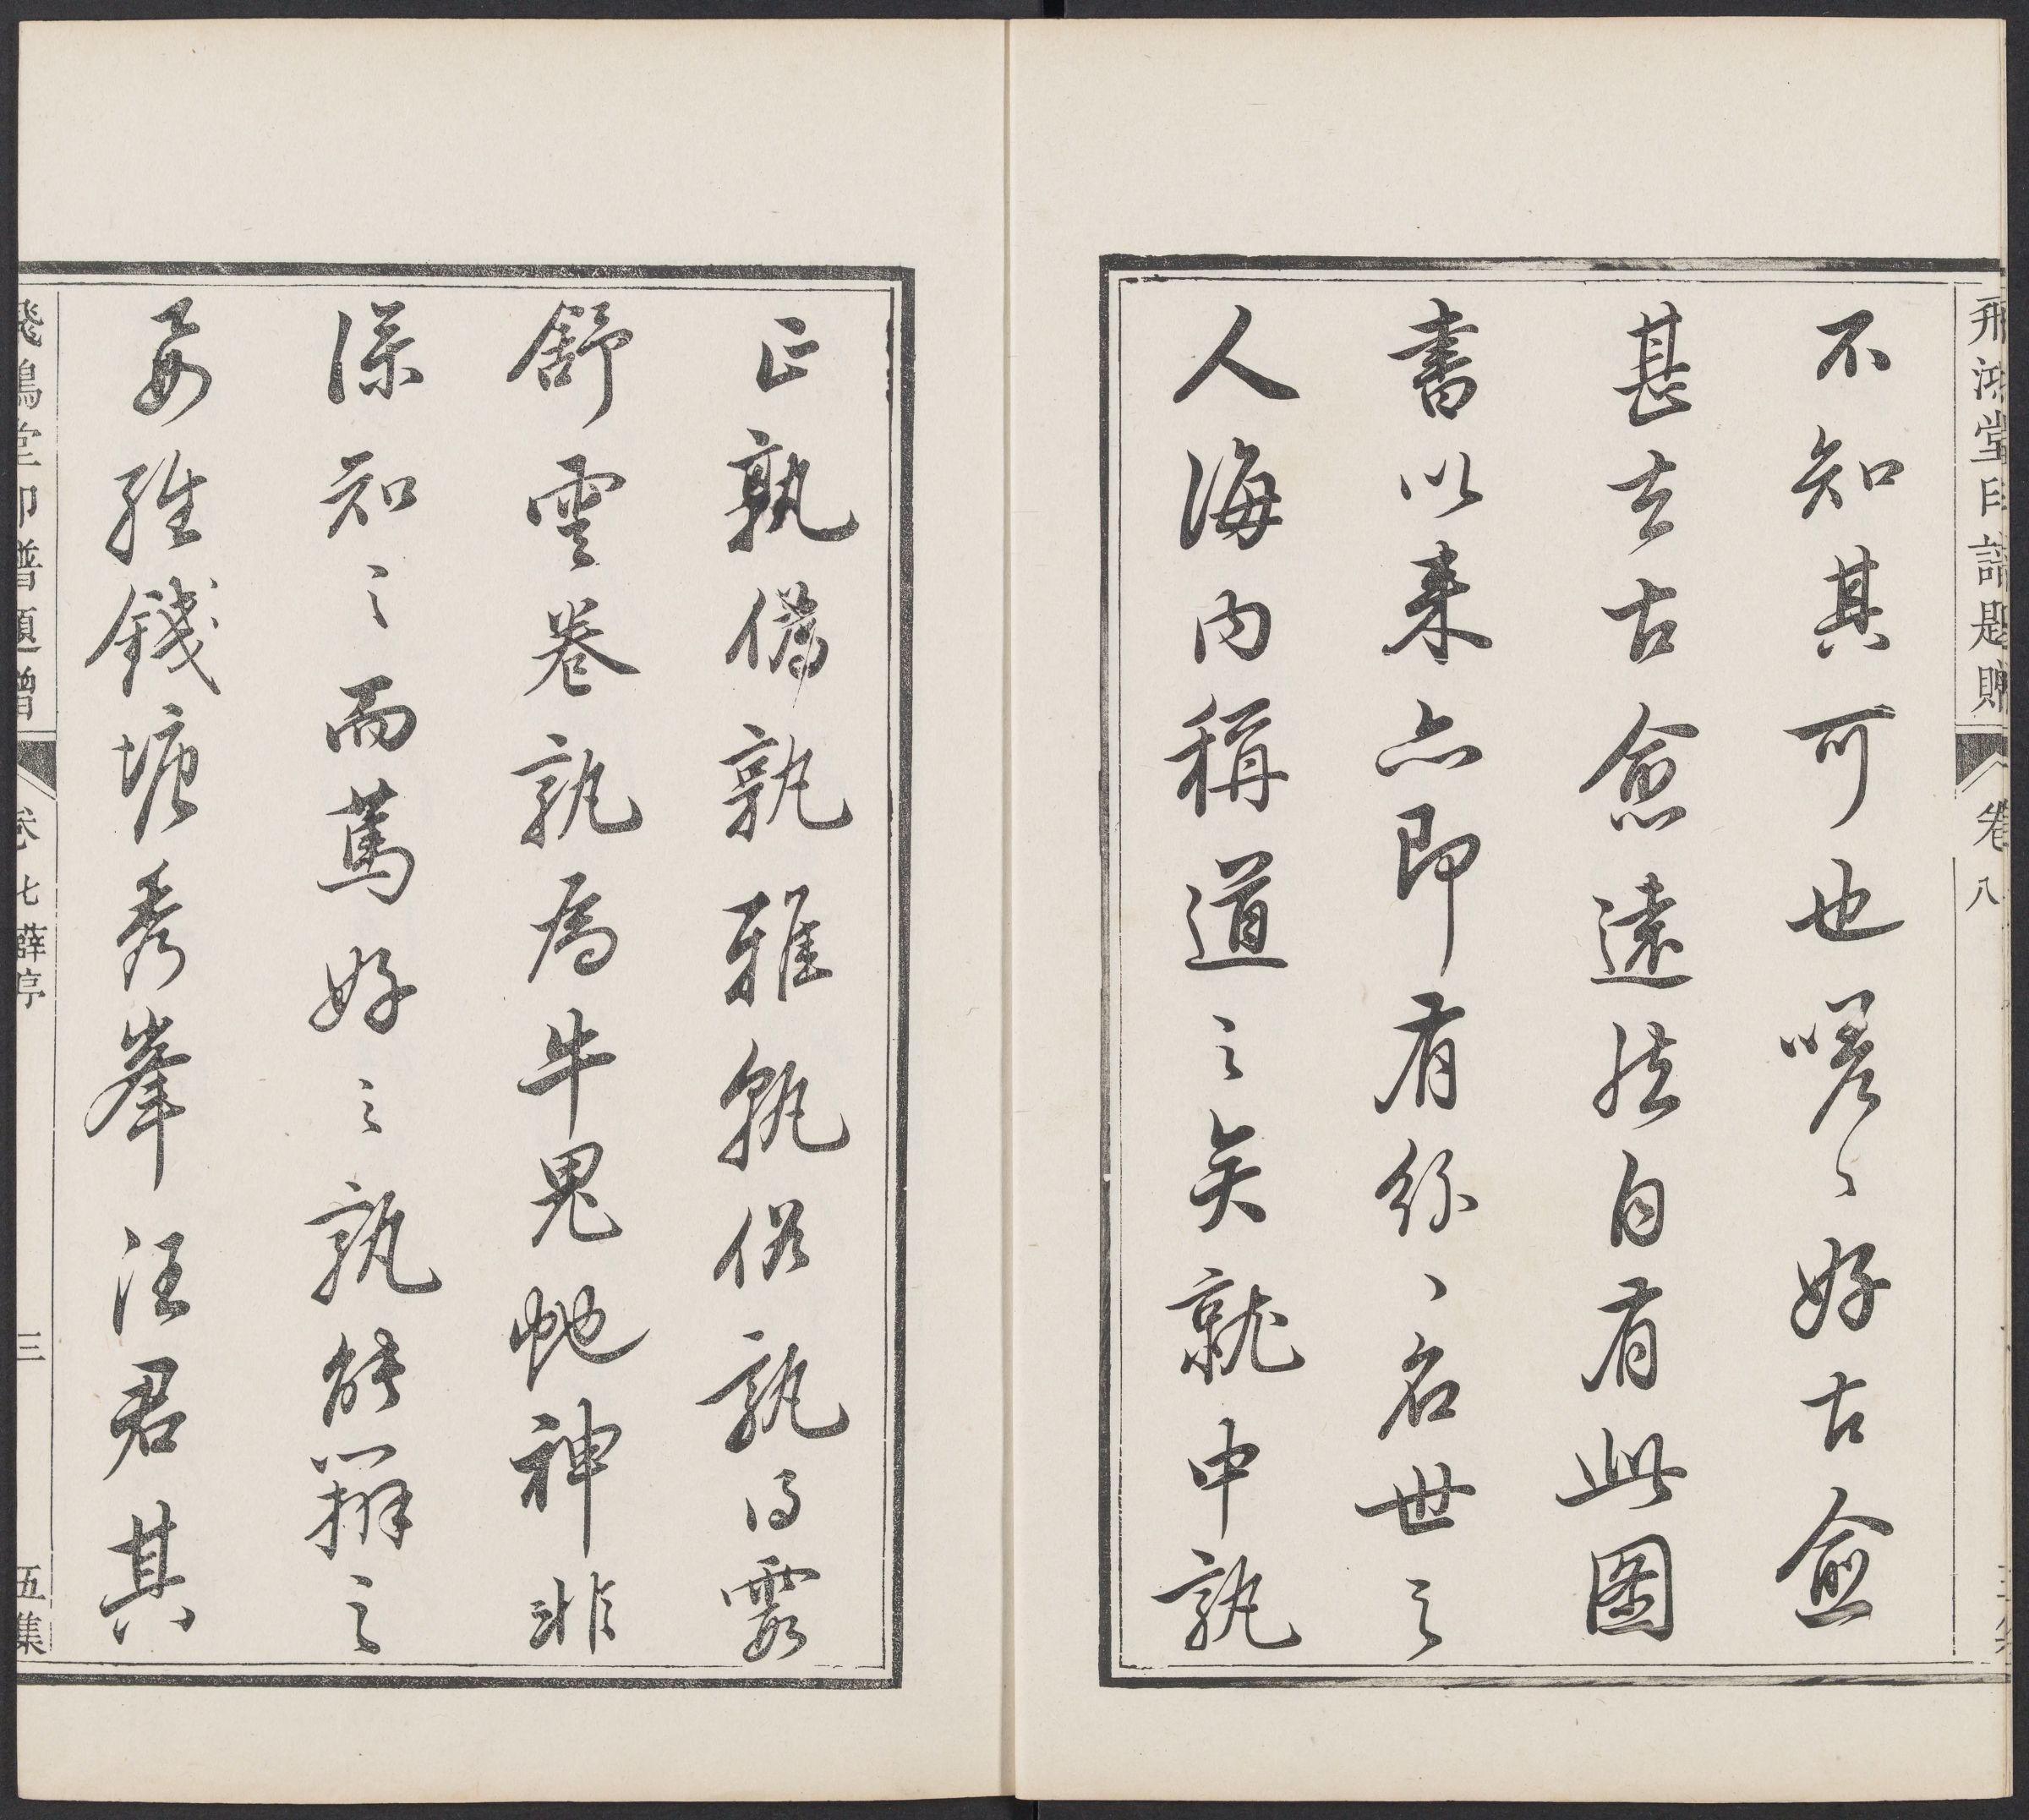 飛鴻堂印譜題贈 卷八
不知其可也嗟〻好古愈
甚去古愈遠然自有此圖
書以来亦即有紛〻名世之
人海內稱道之矣就中孰
正孰偽孰雅孰俗孰得霞
舒雲卷孰為牛鬼虵神非
深知之而篤好之孰能辨之
錢塘秀峯汪君其
飛鴻堂印譜題贈 卷七 薜亭 三 五集